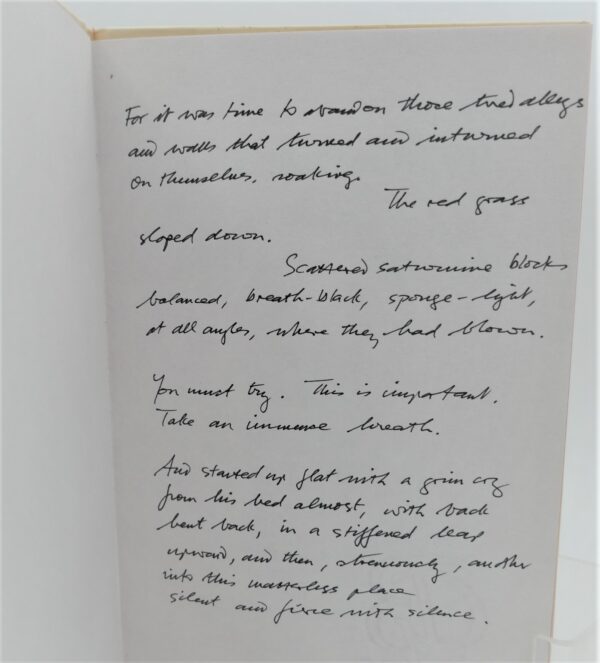 For it was time to abandon those tired alleys
and walls that turned and inturned
on themselves, soaking.
The red grass
sloped down.
Scattered saturnine blocks
balanced, breath-black, sponge-light,
at all angles, where they had blown.
You must try. This is important.
Take an immense breath.
And started up flat with a grim cry
from his bed almost, with back
bent back, in a stiffened leap
upward, and then, strenuously, another
into this masterless place
silent and fierce with silence.